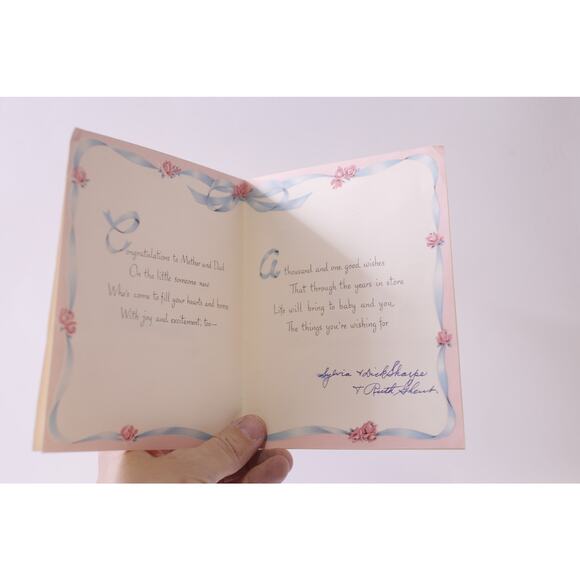 Congratulations to Mother and Dad
On the little someone new
Who's come to fill your hearts and home
With joy and excitement, too—
A thousand and one good wishes
That through the years in store
Life will bring to baby and you,
The things you're wishing for
Sylvia + Dick Sharpe
+ Ruth